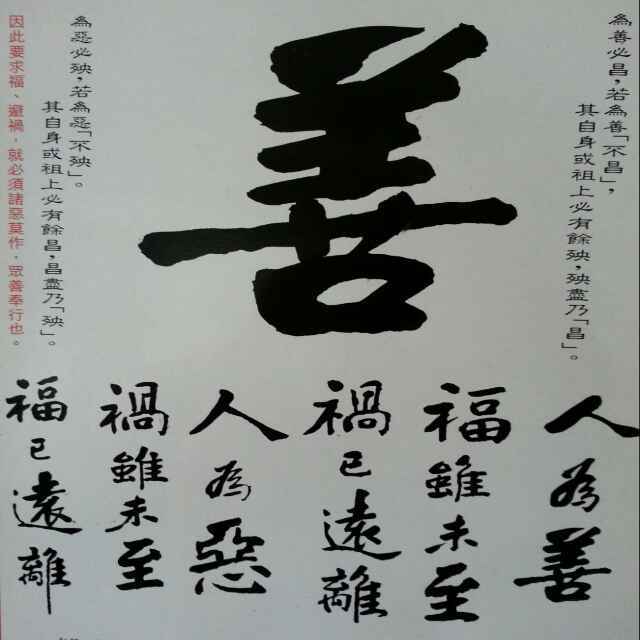 為善必昌，若為善「不昌」，
其自身或祖上必有餘殃，殃盡乃「昌」。
善
為惡必殃，若為惡「不殃」。
其自身或祖上必有餘昌，昌盡乃「殃」。
因此要求福、避禍，就必須諸惡莫作，眾善奉行也。
人為善
福雖未至
禍已遠離
人為惡
禍雖未至
福已遠離